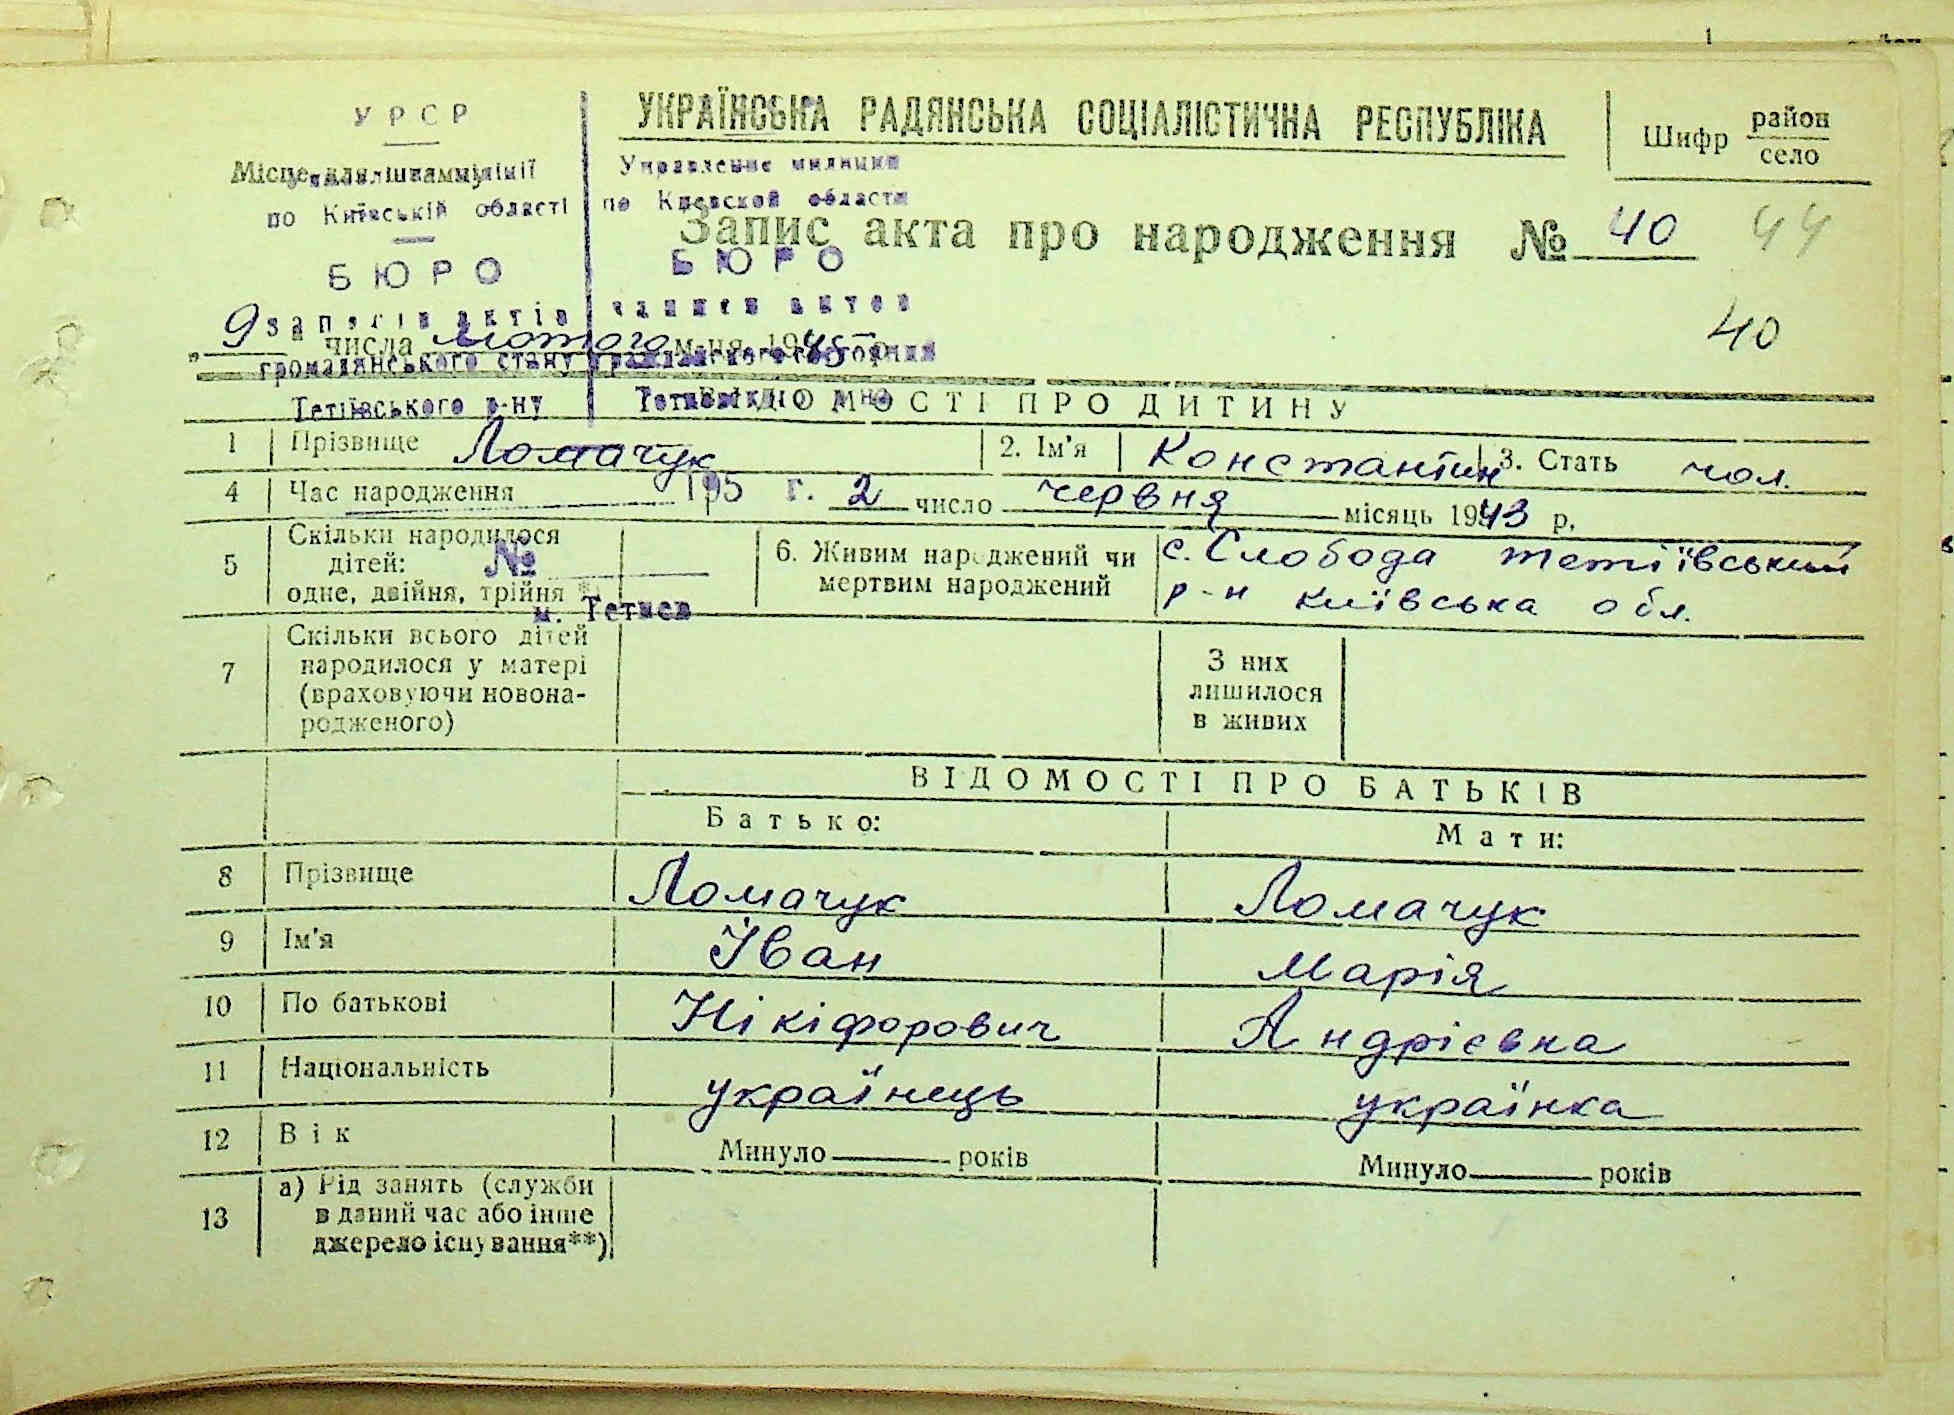 УРСР
УКРАЇНСЬКА РАДЯНСЬКА СОЦІАЛІСТИЧНА РЕСПУБЛІКА
Шифр район
село
Місце для штампу
Управление милиции
по Київській області
по Киевской области
Запис акта про народження № 40 44
БЮРО
БЮРО
записів актів
записи актов
40
„ 9 числа лютого м-ця 1945 р.
громадянського стану
гражданского состояния
Тетіївського р-ну
ВІДОМОСТІ ПРО ДИТИНУ
1 Прізвище Ломачук 2. Ім'я Константин 3. Стать чол.
4 Час народження 195 г. 2 число червня місяць 1943 р.
5 Скільки народилося
дітей: №
одне, двійня, трійня *)
м. Тетиев
6. Живим народжений чи
мертвим народжений
с. Слобода Тетіївський
р-н Київська обл.
7 Скільки всього дітей
народилося у матері
(враховуючи новона-
родженого)
З них
лишилося
в живих
ВІДОМОСТІ ПРО БАТЬКІВ
Батько: Мати:
8 Прізвище Ломачук Ломачук
9 Ім'я Іван Марія
10 По батькові Нікіфорович Андрієвна
11 Національність українець українка
12 Вік Минуло років Минуло років
13 а) Рід занять (служби
в даний час або інше
джерело існування**)